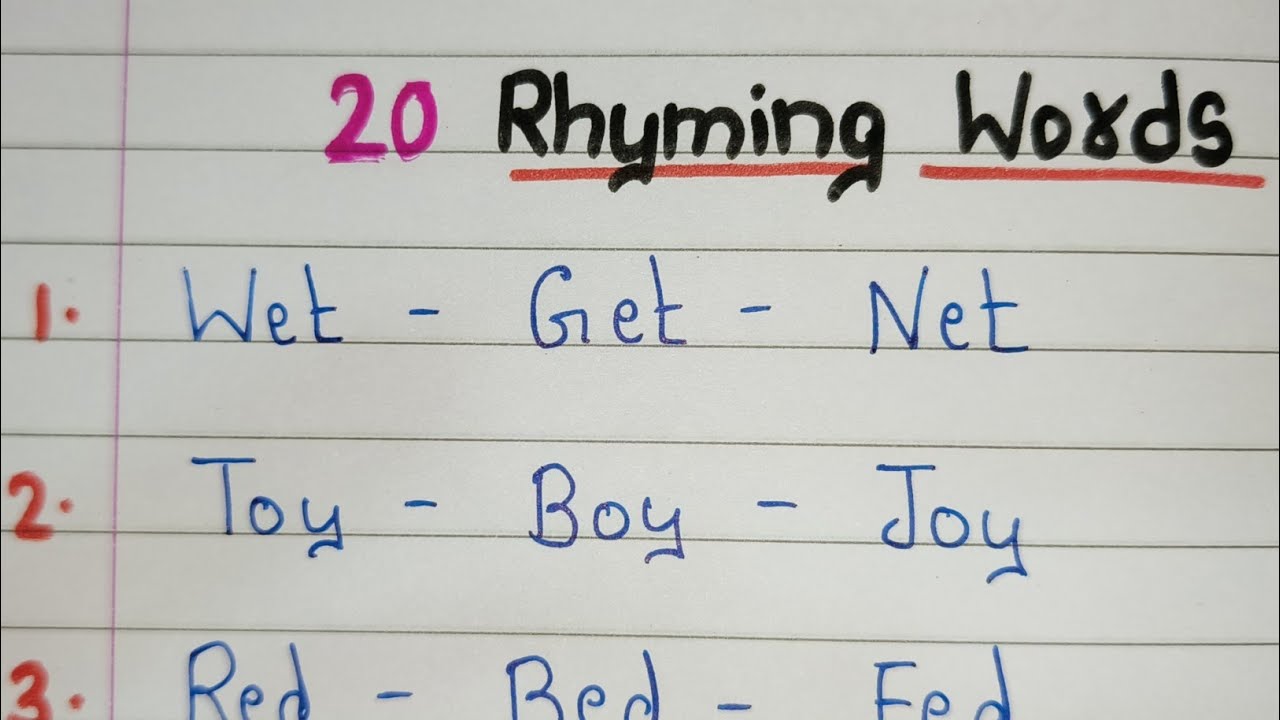 20 Rhyming Words
1. Wet - Get - Net
2. Toy - Boy - Joy
3. Red - Bed - Fed